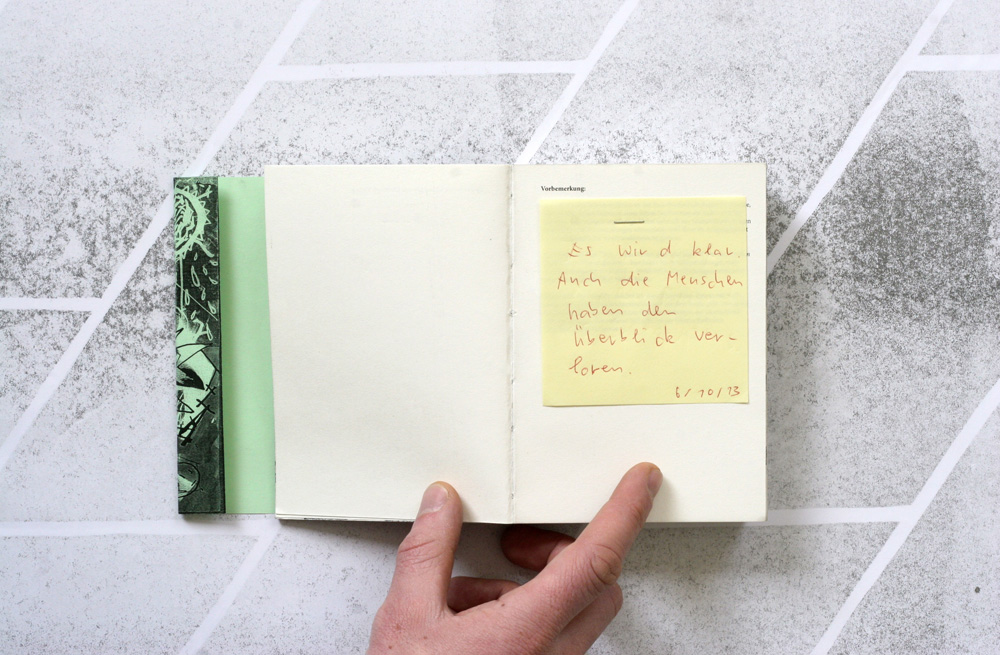 Vorbemerkung:
Es wird klar.
Auch die Menschen
haben den
Überblick ver-
loren.
6/10/13